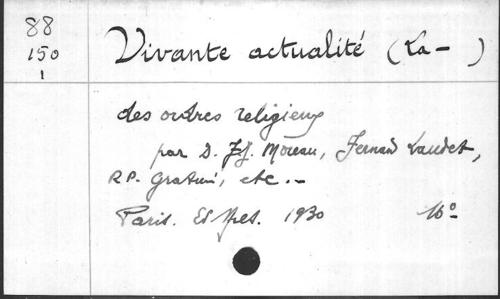 88
150
1
Vivante actualité (La - )
des ordres religieux
par D. Moreau, Fernand Laudet,
R.P. etc. -
Paris. Ed. Spes. 1930 16º